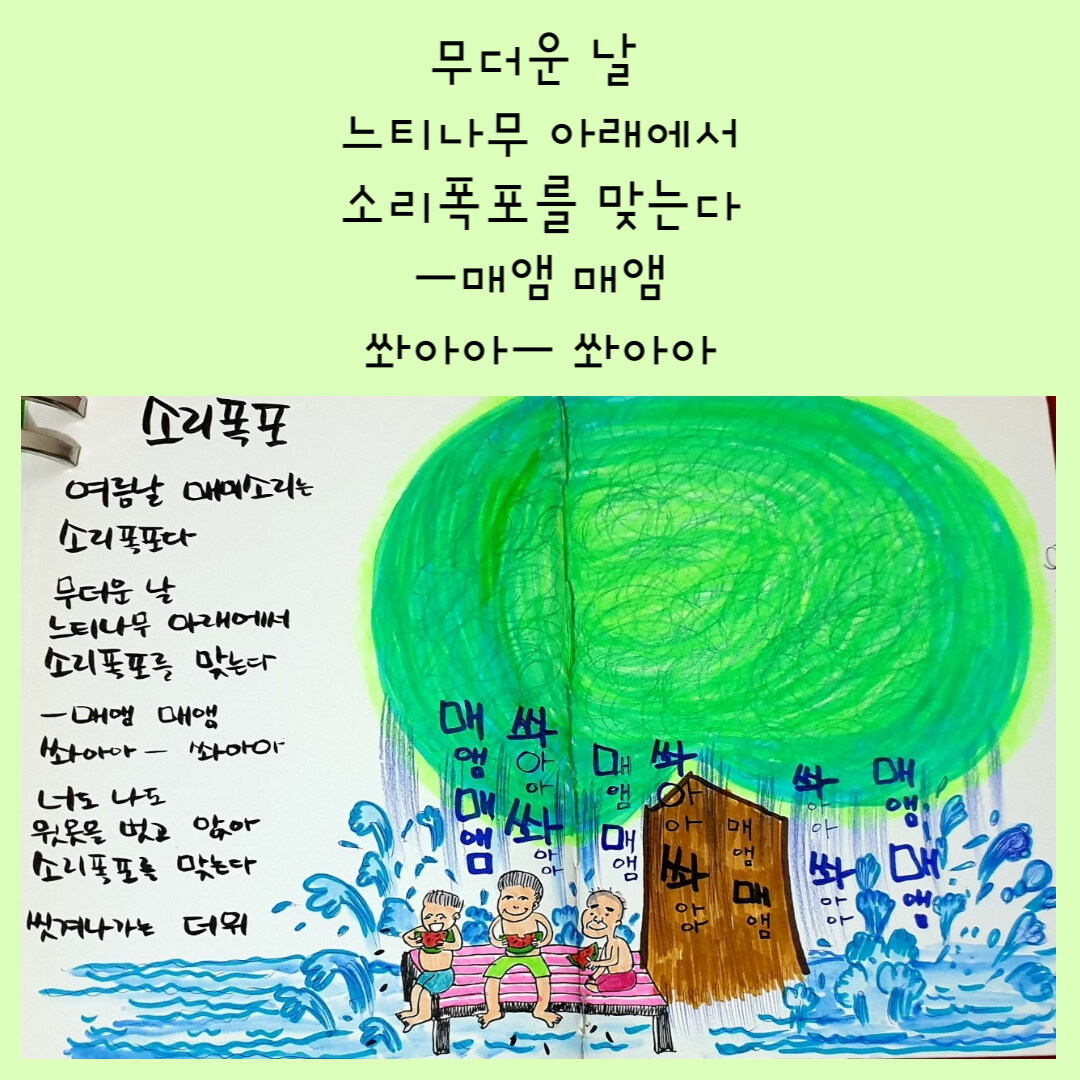 무더운 날
느티나무 아래에서
소리폭포를 맞는다
—매앰 매앰
쏴아아— 쏴아아
소리폭포
여름날 매미소리는
소리폭포다
무더운 날
느티나무 아래에서
소리폭포를 맞는다
—매앰 매앰
쏴아아— 쏴아아
너도 나도
윗옷을 벗고 앉아
소리폭포를 맞는다
씻겨나가는 더위
매앰
매앰
쏴아아
쏴아아
매앰
매앰
쏴아아
쏴아아
매앰
매앰
쏴아아
쏴아아
매앰
매앰